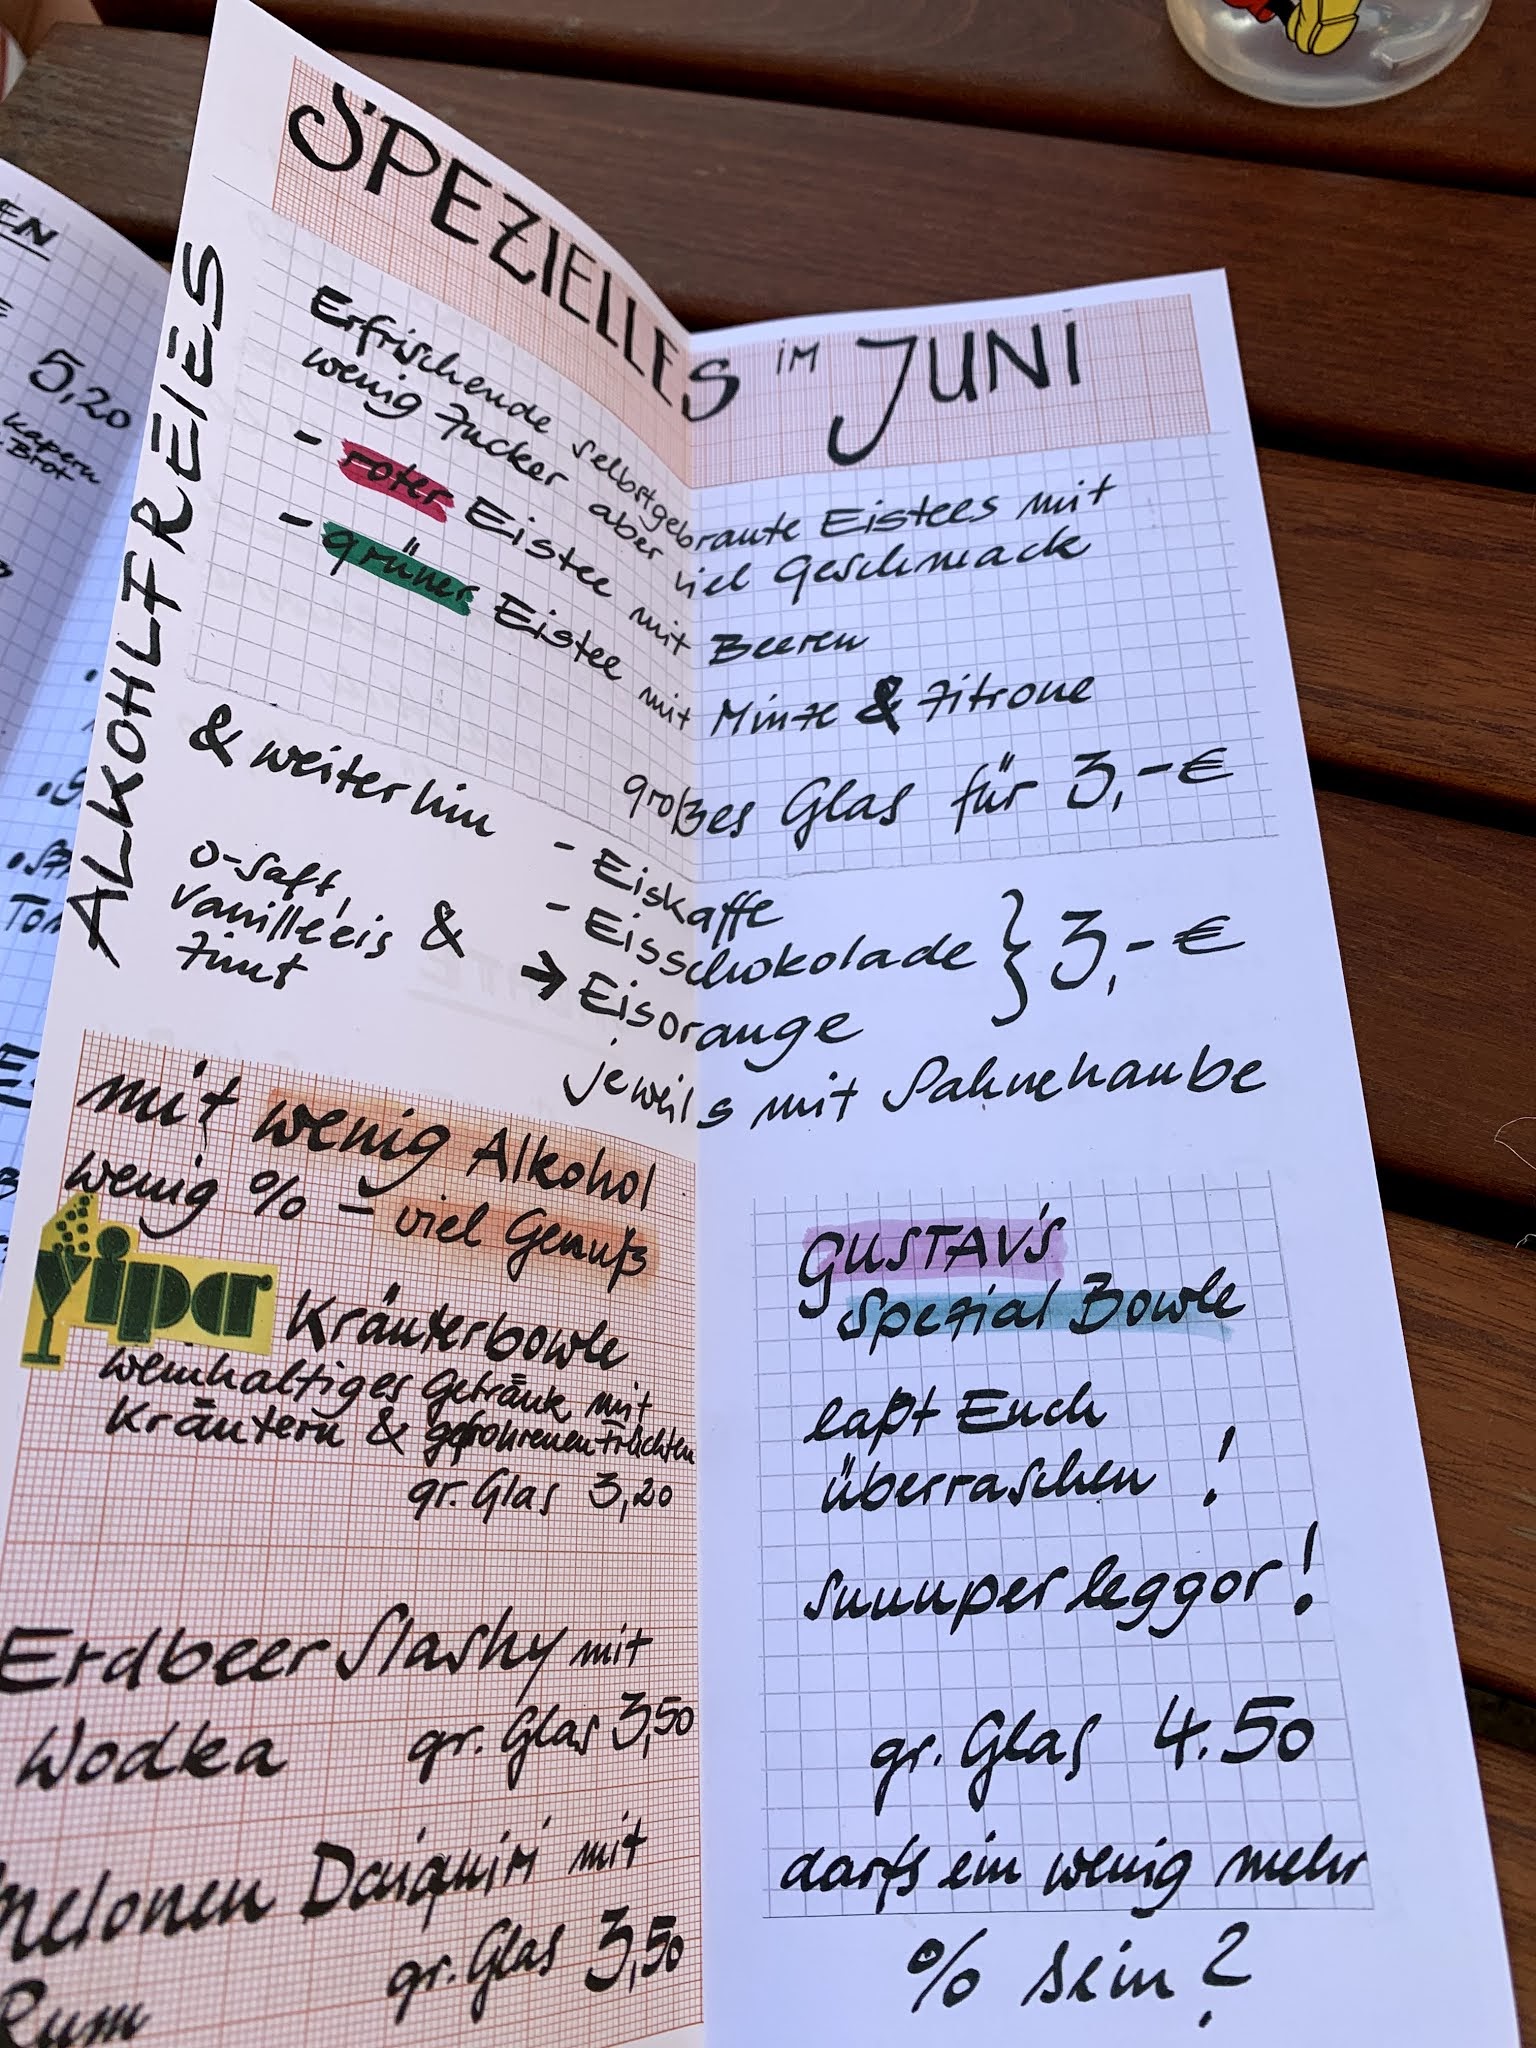 SPEZIELLES IM JUNI
ALKOHLFREIES
Erfrischende selbstgebraute Eistees mit
wenig Zucker aber viel Geschmack
- roter Eistee mit Beeren
- grüner Eistee mit Minze & Zitrone
großes Glas für 3,-€
& weiterhin - Eiskaffe
- Eisschokolade } 3,-€
O-Saft,
Vanilleeis &
Zimt
→ Eisorange
jeweils mit Sahnehaube
mit wenig Alkohol
wenig % - viel Genuß
vipa Kräuterbowle
weinhaltiges Getränk mit
Kräutern & gefrohrenen Früchten
gr. Glas 3,20
Erdbeer Slashy mit
Wodka gr. Glas 3,50
Melonen Daiquiri mit
Rum gr. Glas 3,50
GUSTAV's
Spezial Bowle
laßt Euch
überraschen !
suuuper leggor!
gr. Glas 4.50
darfs ein wenig mehr
% sein?
EN
5,20
Kapern
Brot